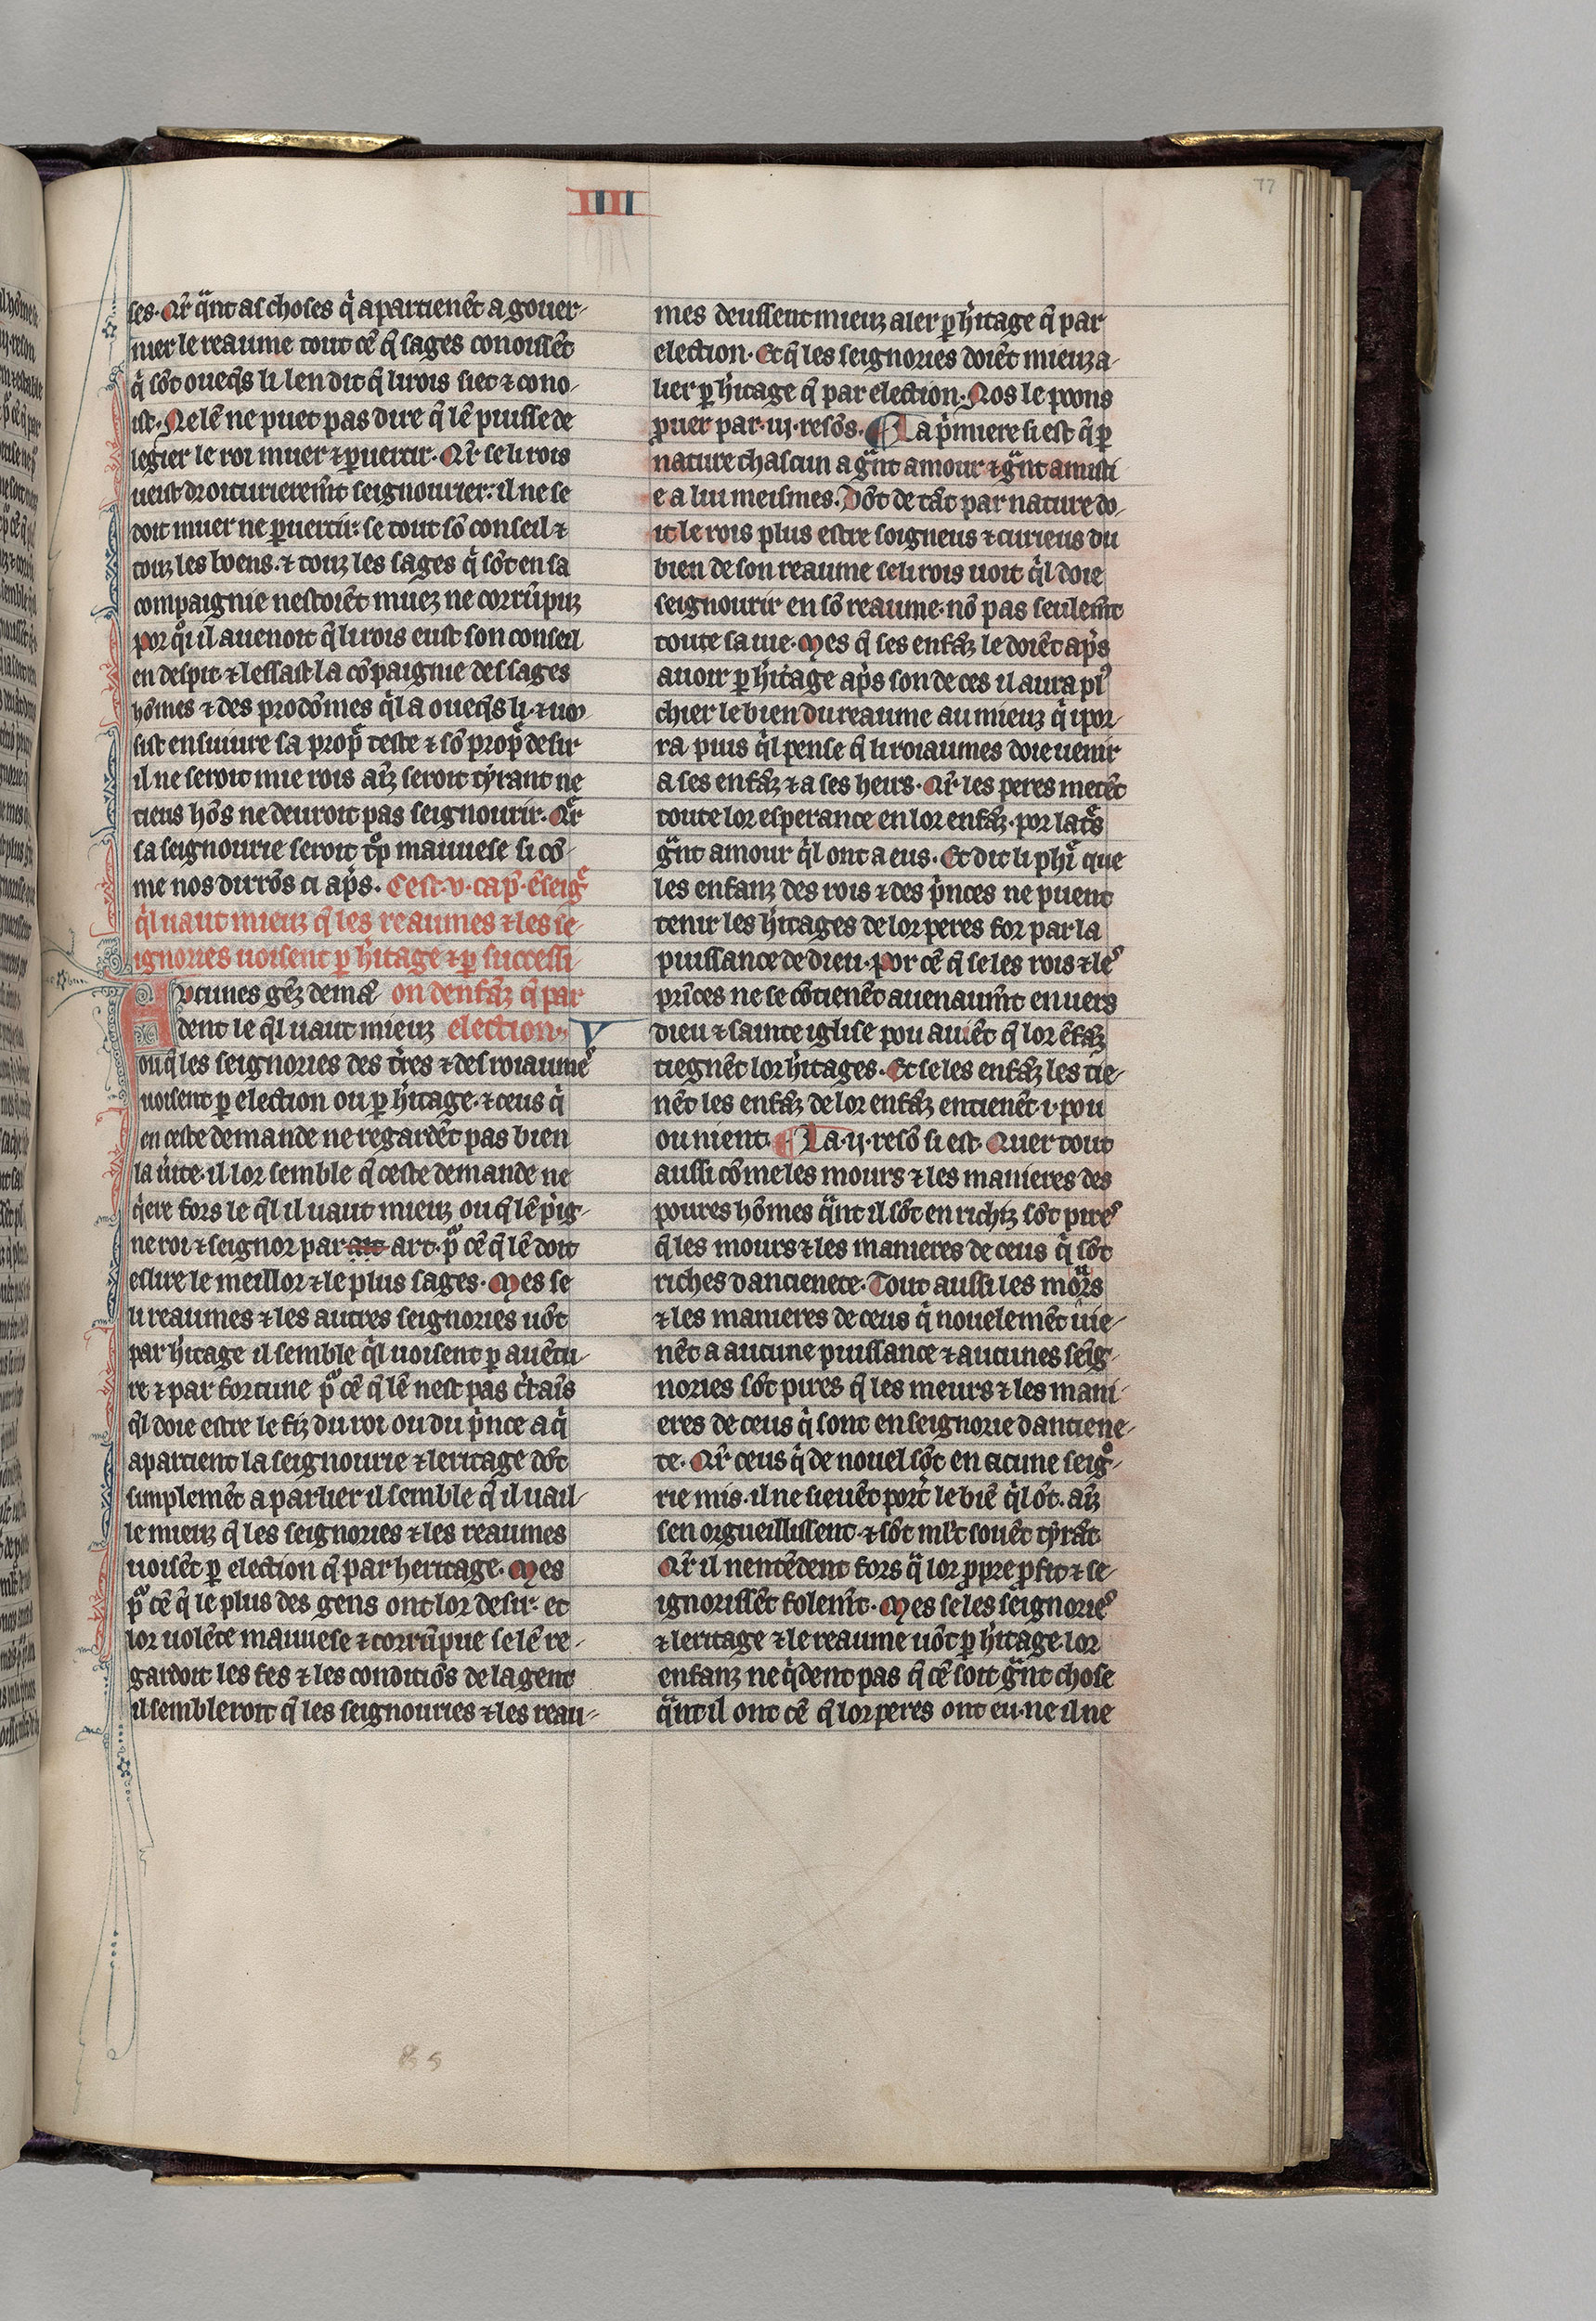 IIII
77
ses. Qr̄ q̃nt as choses q̇ apartienēt a gouer-
ner le reaume tout cē q̃ sages conoissēt
q̇ sōt oueq̃s li len dit q̃ li rois siet ⁊ cono-
ist. Ne lē ne puet pas dire q̃ lē puisse de
legier le roi muer ⁊ ꝑuertir. Qr̄ se li rois
ueist droiturierem̄t seignourier: il ne se
doit muer ne ꝑuertir: se tout sō conseil ⁊
touz les boens. ⁊ touz les sages q̇ sōt en sa
compaignie nestoiēt muez ne corrūpuz
por qͦi il auenoit q̃ li rois eust son conseil
en despit ⁊ lessast la cōpaignie des sages
hōmes ⁊ des prodōmes q̃l a oueq̃s li. ⁊ uo-
sist ensuiure sa propͣ teste ⁊ sō propͣ desir
il ne seroit mie rois aīz seroit tyrant ne
tieus hōs ne deuroit pas seignourir. Qr̄
sa seignourie seroit tͦp mauuese si cō-
me nos dirrōs ci ap̃s. Cest. v. cap̃. ēseigͤ
q̃l uaut mieuz q̃ les reaumes ⁊ les se-
ignories uoisent ꝑ h̃itage ⁊ ꝑ successi-
Avcunes gēz demāͤ on denfāz q̃ par
dent le q̃l uaut mieuz election. V
ou q̃ les seignories des t̃res ⁊ des roiaumeˢ
uoisent ꝑ election ou ꝑ h̃itage. ⁊ ceus q̇
en ceste demande ne regardēt pas bien
la ṽite. il lor semble q̃ ceste demande ne
q̇ere fors le q̃l il uaut mieuz ou q̃ lē p̃ig-
ne roi ⁊ seignor par art. pͦ cē q̃ lē doit
eslire le meillor ⁊ le plus sages. Mes se
li reaumes ⁊ les autres seignories uōt
par h̃itage il semble q̃l uoisent ꝑ auētu-
re ⁊ par fortune pͦ cē q̃ lē nest pas c̃taīs
q̃l doie estre le fiz du roi ou du p̃nce a q̇
apartient la seignourie ⁊ leritage dōt
simplemēt a parlier il semble q̃ il uail-
le mieuz q̃ les seignories ⁊ les reaumes
uoisēt ꝑ election q̃ par heritage. Mes
pͦ cē q̃ le plus des gens ont lor desir. et
lor uolēte mauuese ⁊ corrūpue se lē re-
gardoit les fes ⁊ les conditiōs de la gent
il sembleroit q̃ les seignouries ⁊ les reau-
mes deussent mieuz aler ꝑ h̃itage q̃ par
election. Et q̃ les seignories doiēt mieuz a-
lier ꝑ h̃itage q̃ par election. Nos le poons
ꝓuer par. iij. resōs. ¶ La p̃miere si est q̃ ꝑ
nature chascun a gͣnt amour ⁊ gͣnt amisti-
e a lui meismes. Dōt de tāt par nature do-
it le rois plus estre soigneus ⁊ curieus du
bien de son reaume se li rois uoit q̃l doie
seignourir en sō reaume. nō pas seulem̄t
toute sa uie. Mes q̃ ses enfāz le doiēt ap̃s
auoir ꝑ h̃itage ap̃s son deces il aura plꝰ
chier le bien du reaume au mieuz q̇ i por-
ra puis q̃l pense q̃ li roiaumes doie uenir
a ses enfāz ⁊ a ses heirs. Qr̄ les peres metēt
toute lor esperance en lor enfāz. por la tͤs
gͣnt amour q̃l ont a eus. Et dit li phi̾ que
les enfanz des rois ⁊ des p̃nces ne puent
tenir les h̃itages de lor peres for par la
puissance de dieu. por cē q̃ se les rois ⁊ leˢ
princes ne se cōtienēt auenaum̄t enuers
dieu ⁊ sainte iglise pou auiēt q̃ lor ēfāz
tiegnēt lor h̃itages. Et se les enfāz les tie-
nēt les enfāz de lor enfāz entienēt. i. pou
ou nient. ¶ La. ij. resō si est. Quer tout
aussi cōme les mours ⁊ les manieres des
poures hōmes q̃nt il sōt enrichiz sōt pireˢ
q̃ les mours ⁊ les manieres de ceus q̇ sōt
riches dancienete. Tout aussi les mōrs
⁊ les manieres de ceus q̇ nouelemēt uie-
nēt a aucune puissance ⁊ aucunes seig-
nories sōt pires q̃ les meurs ⁊ les mani-
eres de ceus q̇ sont en seignorie danciene-
te. Qr̄ ceus q̇ de nouel sōt en aucune seigͦ-
rie mis. il ne seuēt port̃ le biē q̃l ōt. aīz
sen orgueillissent. ⁊ sōt ml̃t souēt tyrāt.
Qr̄ il nentēdent fors q̃ lor ꝓpre ꝓfit ⁊ se-
ignorissēt folem̄t. Mes se les seignorieˢ
⁊ leritage ⁊ le reaume uōt ꝑ h̃itage. lor
enfanz ne q̇dent pas q̃ cē soit gͣnt chose
q̃nt il ont cē q̃ lor peres ont eu. ne il ne
85